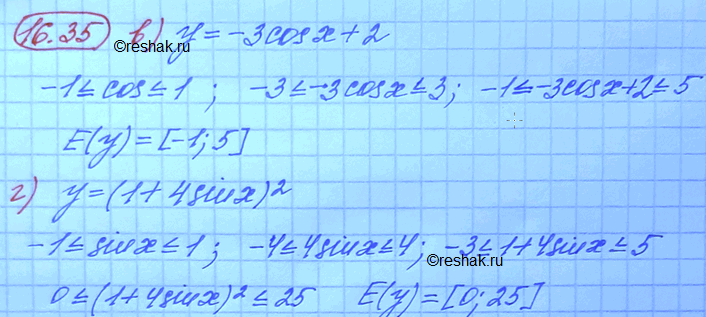 16.35 в) y = -3cosx+2
©reshak.ru
-1≤cos≤1 ; -3≤-3cosx≤3; -1≤-3cosx+2≤5
E(y) = [-1; 5]
г) y=(1+4sinx)²
-1≤sinx≤1; -4≤4sinx≤4; -3≤1+4sinx≤5
0≤(1+4sinx)²≤25 E(y)=[0; 25]
©reshak.ru